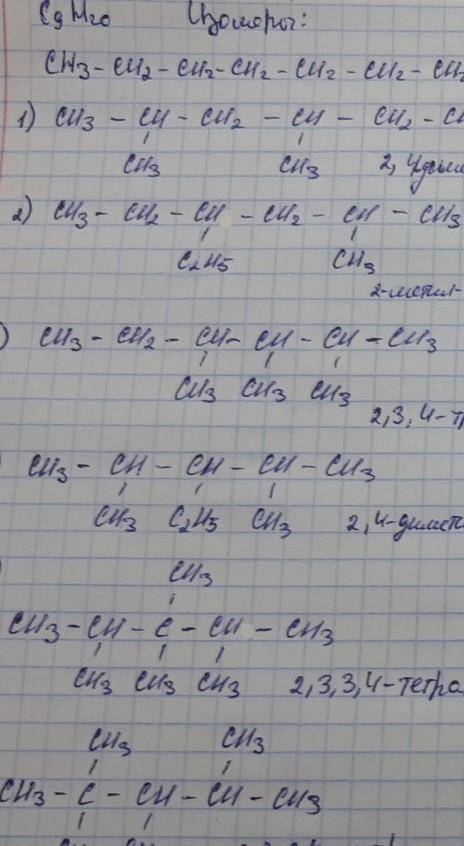 C9H20 Изомеры:
CH3 - CH2 - CH2 - CH2 - CH2 - CH2 - CH2
1) CH3 - CH - CH2 - CH - CH2 - CH
CH3 CH3 2,4
2) CH3 - CH2 - CH - CH2 - CH - CH3
C2H5 CH3
2-метил-
) CH3 - CH2 - CH - CH - CH - CH3
CH3 CH3 CH3
2,3,4-тр
CH3 - CH - CH - CH - CH3
CH3 C2H5 CH3 2,4-димет
CH3
CH3 - CH - C - CH - CH3
CH3 CH3 CH3 2,3,3,4-тетра
CH3 CH3
CH3 - C - CH - CH - CH3